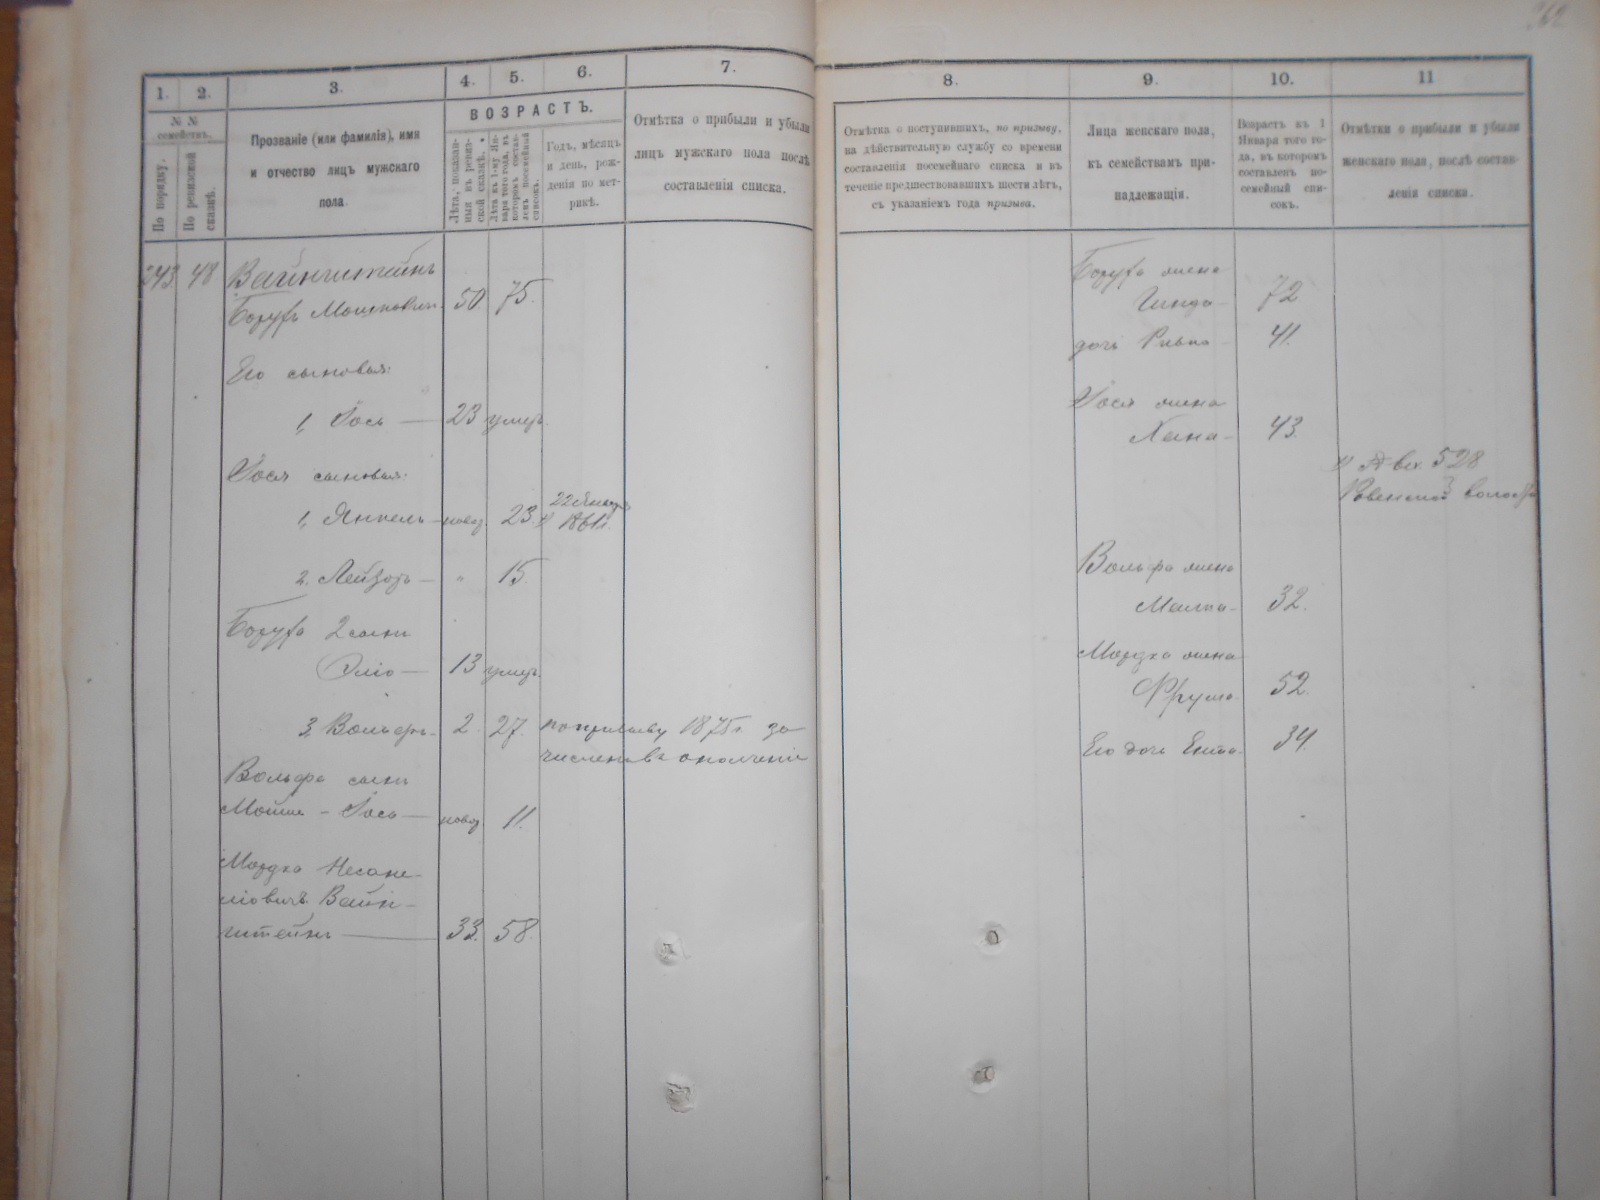 1.
2.
3.
4.
5.
6.
7.
№ №
семействъ.
По порядку.
По ревизской
сказкѣ.
Прозваніе (или фамилія), имя
и отчество лицъ мужскаго
пола.
ВОЗРАСТЪ.
Лѣта, показан-
ныя въ ревиз-
ской сказкѣ.
Лѣта къ 1-му Ян-
варя того года, въ
которомъ состав-
ленъ посемейный
списокъ.
Годъ, мѣсяцъ
и день, рож-
денія по мет-
рикѣ.
Отмѣтка о прибыли и убыли
лицъ мужскаго пола послѣ
составленія списка.
243 48 Вайнштейнъ
Борухъ Мошковичъ 50. 75.
Его сыновья:
1, Іось — 23 умеръ.
Іося сыновья:
1, Янкель — новор. 23.
1861 г.
2. Лейзоръ — " 15.
Боруха 2 сынъ
Эліо — 13 умеръ.
3, Вольфъ - 2. 27. по призыву 1875 г. за
численъ въ ополченіе
Вольфа сынъ
Мойше - Іось — новор. 11.
Мордко
Вайн-
штейнъ — 33. 58.
8.
9.
10.
11
Отмѣтка о поступившихъ, по призыву,
на дѣйствительную службу со времени
составленія посемейнаго списка и въ
теченіе предшествовавшихъ шости лѣтъ,
съ указаніемъ года призыва.
Лица женскаго пола,
къ семействамъ при-
надлежащія.
Возрастъ къ 1
Января того го-
да, въ которомъ
составленъ по-
семейный спи-
сокъ.
Отмѣтки о прибыли и убыли
женскаго пола, послѣ состав-
ленія списка.
Боруха жена
Гинда - 72
дочь Ривка - 41.
Іося жена
Хана - 43.
528
Ровенской волости
Вольфа жена
Малка - 32.
Мордка жена
Фрума 52.
Его дочь Ента 34.